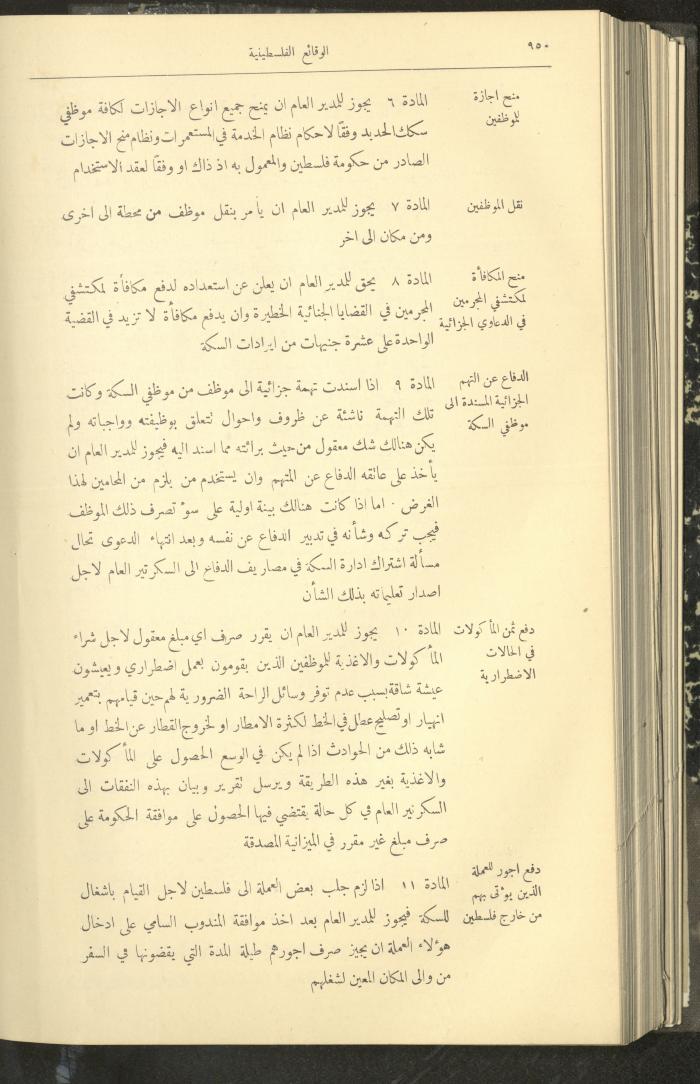 ٩٥٠
الوقائع الفلسطينية
منح اجازة
للموظفين
المادة ٦ يجوز للمدير العام ان يمنح جميع انواع الاجازات لكافة موظفي
سكك الحديد وفقًا لاحكام نظام الخدمة في المستعمرات ونظام منح الاجازات
الصادر من حكومة فلسطين والمعمول به اذ ذاك او وفقًا لعقد الاستخدام
نقل الموظفين
المادة ٧ يجوز للمدير العام ان يأمر بنقل موظف من محطة الى اخرى
ومن مكان الى اخر
منح المكافأة
لمكتشفي المجرمين
في الدعاوي الجزائية
المادة ٨ يحق للمدير العام ان يعلن عن استعداده لدفع مكافأة لمكتشفي
المجرمين في القضايا الجنائية الخطيرة وان يدفع مكافأة لا تزيد في القضية
الواحدة على عشرة جنيهات من ايرادات السكة
الدفاع عن التهم
الجزائية المسندة الى
موظفي السكة
المادة ٩ اذا اسندت تهمة جزائية الى موظف من موظفي السكة وكانت
تلك التهمة ناشئة عن ظروف واحوال تتعلق بوظيفته وواجباته ولم
يكن هنالك شك معقول من حيث برائته مما اسند اليه فيجوز للمدير العام ان
يأخذ على عاتقه الدفاع عن المتهم وان يستخدم من يلزم من المحامين لهذا
الغرض . اما اذا كانت هنالك بينة اولية على سوء تصرف ذلك الموظف
فيجب تركه وشأنه في تدبير الدفاع عن نفسه وبعد انتهاء الدعوى تحال
مسألة اشتراك ادارة السكة في مصاريف الدفاع الى السكرتير العام لاجل
اصدار تعليماته بذلك الشأن
دفع ثمن المأكولات
في الحالات
الاضطرارية
المادة ١٠ يجوز للمدير العام ان يقرر صرف اي مبلغ معقول لاجل شراء
المأكولات والاغذية للموظفين الذين يقومون بعمل اضطراري ويعيشون
عيشة شاقة بسبب عدم توفر وسائل الراحة الضرورية لهم حين قيامهم بتعمير
انهيار او تصليح عطل في الخط لكثرة الامطار او لخروج القطار عن الخط او ما
شابه ذلك من الحوادث اذا لم يكن في الوسع الحصول على المأكولات
والاغذية بغير هذه الطريقة ويرسل تقرير وبيان بهذه النفقات الى
السكرتير العام في كل حالة يقتضي فيها الحصول على موافقة الحكومة على
صرف مبلغ غير مقرر في الميزانية المصدقة
دفع اجور للعملة
الذين يؤتى بهم
من خارج فلسطين
المادة ١١ اذا لزم جلب بعض العملة الى فلسطين لاجل القيام باشغال
للسكة فيجوز للمدير العام بعد اخذ موافقة المندوب السامي على ادخال
هؤلاء العملة ان يجيز صرف اجورهم طيلة المدة التي يقضونها في السفر
من والى المكان المعين لشغلهم